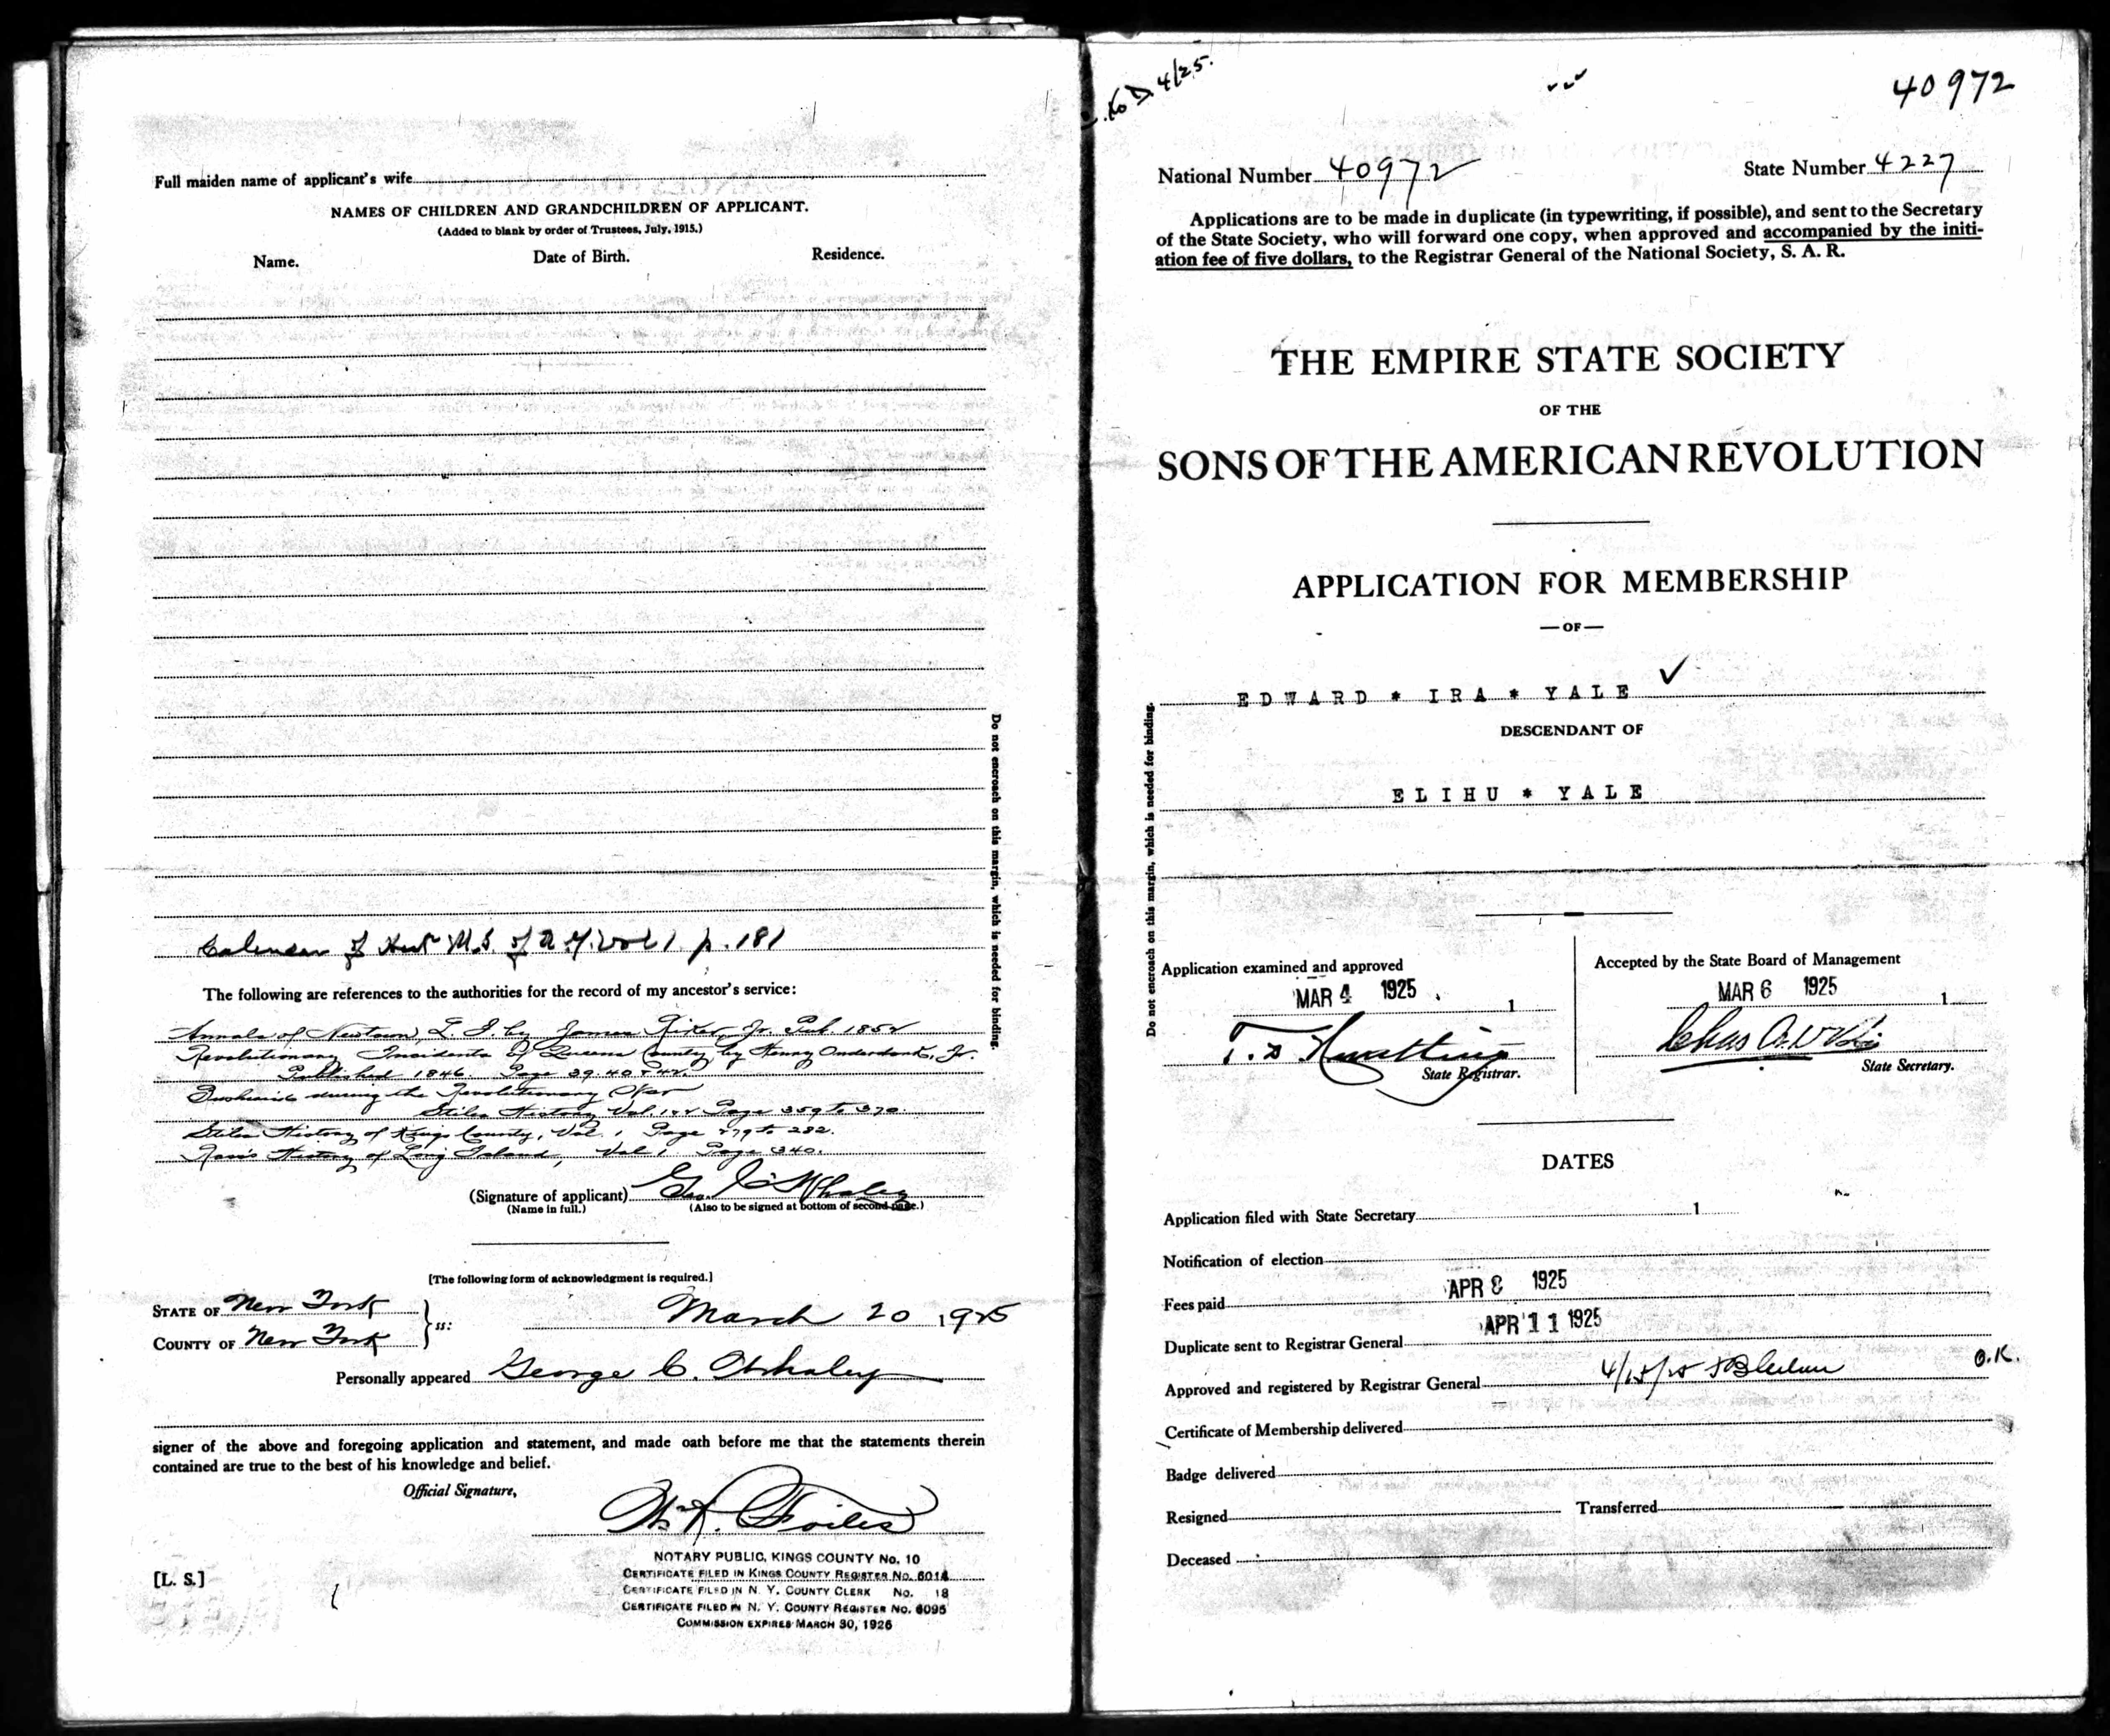 Full maiden name of applicant's wife
NAMES OF CHILDREN AND GRANDCHILDREN OF APPLICANT.
(Added to blank by order of Trustees, July, 1915.)
Name. Date of Birth. Residence.
Calendar of Hist M.S. of N.Y. Vol 1 p. 181
The following are references to the authorities for the record of my ancestor's service:
Annals of Newtown, L. I. by James Riker, Jr. Pub. 1852
Revolutionary Incidents of Queens County, by Henry Onderdonk, Jr.
Published 1846. Page 39.40 & 42.
Bushwick during the Revolutionary War
Stiles History Vol. 1 Page 359 to 370.
Stiles History of Kings County, Vol. 1 Page 279 to 282.
Ross's History of Long Island, Vol 1 Page 340.
(Signature of applicant) Geo. C. Whaley
(Name in full.) (Also to be signed at bottom of second page.)
[The following form of acknowledgment is required.]
STATE OF New York
COUNTY OF New York } ss: March 20 1925
Personally appeared George C. Whaley
signer of the above and foregoing application and statement, and made oath before me that the statements therein
contained are true to the best of his knowledge and belief.
Official Signature,
[L. S.]
NOTARY PUBLIC, KINGS COUNTY No. 10
CERTIFICATE FILED IN KINGS COUNTY REGISTER No. 6014
CERTIFICATE FILED IN N. Y. COUNTY CLERK No. 18
CERTIFICATE FILED IN N. Y. COUNTY REGISTER No. 6095
COMMISSION EXPIRES MARCH 30, 1926
Do not encroach on this margin, which is needed for binding.
4/25.
40972
National Number 40972 State Number 4227
Applications are to be made in duplicate (in typewriting, if possible), and sent to the Secretary
of the State Society, who will forward one copy, when approved and accompanied by the initi-
ation fee of five dollars, to the Registrar General of the National Society, S. A. R.
THE EMPIRE STATE SOCIETY
OF THE
SONS OF THE AMERICAN REVOLUTION
APPLICATION FOR MEMBERSHIP
—OF—
EDWARD * IRA * YALE
DESCENDANT OF
ELIHU * YALE
Do not encroach on this margin, which is needed for binding.
Application examined and approved
MAR 4 1925 1
State Registrar.
Accepted by the State Board of Management
MAR 6 1925 1
State Secretary.
DATES
Application filed with State Secretary 1
Notification of election
Fees paid APR 8 1925
Duplicate sent to Registrar General APR 11 1925
Approved and registered by Registrar General 4/15/25 O.K.
Certificate of Membership delivered
Badge delivered
Resigned Transferred
Deceased